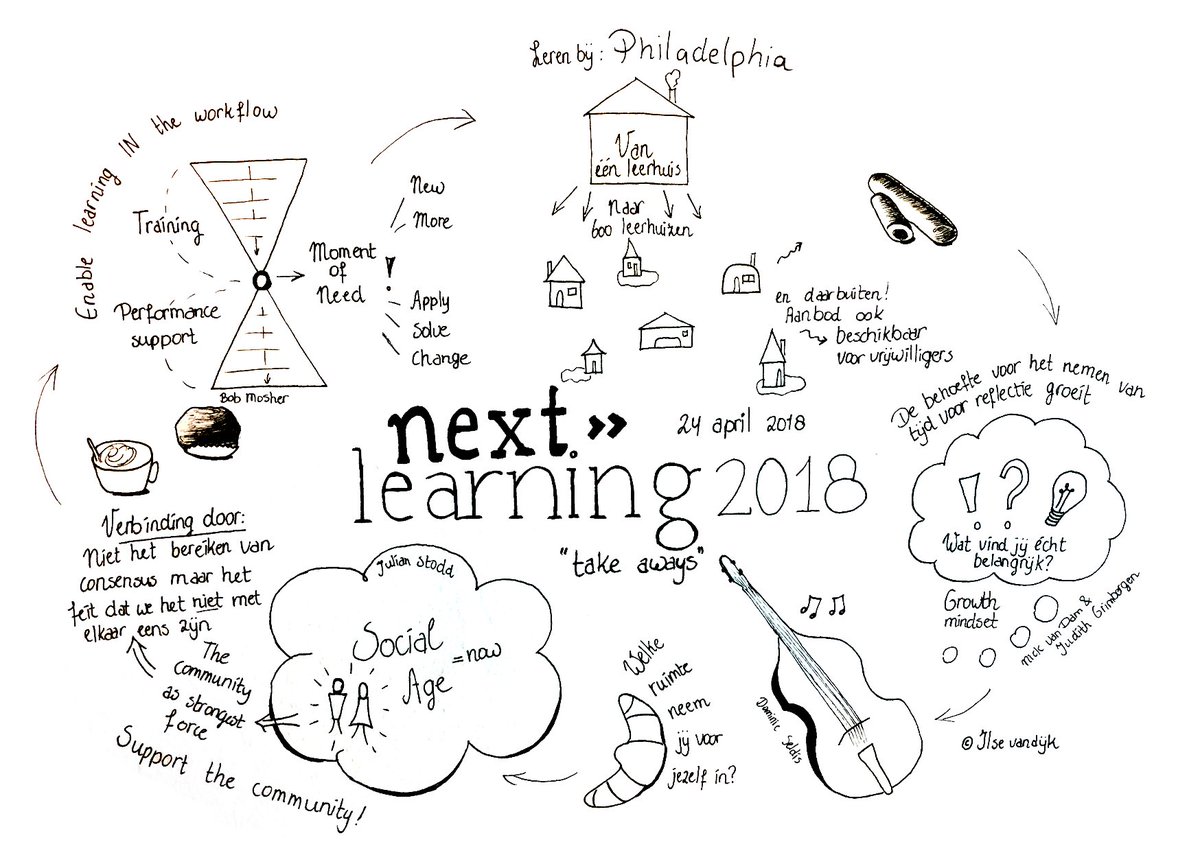 Leren bij: Philadelphia
Van
één leerhuis
naar
600 leerhuizen
en daarbuiten!
Aanbod ook
beschikbaar
voor vrijwilligers
Enable learning IN the workflow
Training
Performance
support
Moment
of
Need
!
New
More
Apply
Solve
Change
Bob Mosher
next »
learning 2018
24 april 2018
"take aways"
De behoefte voor het nemen van
tijd voor reflectie groeit
! ?
Wat vind jij écht
belangrijk?
Growth
mindset
Nick van Dam &
Judith Grimbergen
© Ilse vandijk
Dominic Seldis
Welke
ruimte
neem
jij voor
jezelf in?
Julian Stodd
Social
Age
= now
The
community
as strongest
force
Support the community!
Verbinding door:
Niet het bereiken van
consensus maar het
feit dat we het niet met
elkaar eens zijn